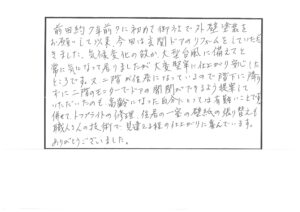 前回約7年前?に初めて御社で外壁塗装を
お願いして以来、今回は玄関ドアのリフォームをしていただ
きました。気候変化の影か大型台風に備えてと
常に気になって居りましたが大変堅牢に仕上がり安心した
というです。又二階が住居になっているので階下に降り
ずに二階のモニターでドアの開閉ができるよう提案して
いただいたのも高齢になった自分にとっては有難いことです。
併せてトップライトの修理、住居の一室の壁紙の張り替えも
職人さんの技術で、見違える程の仕上がりに喜んでいます。
ありがとうございました。